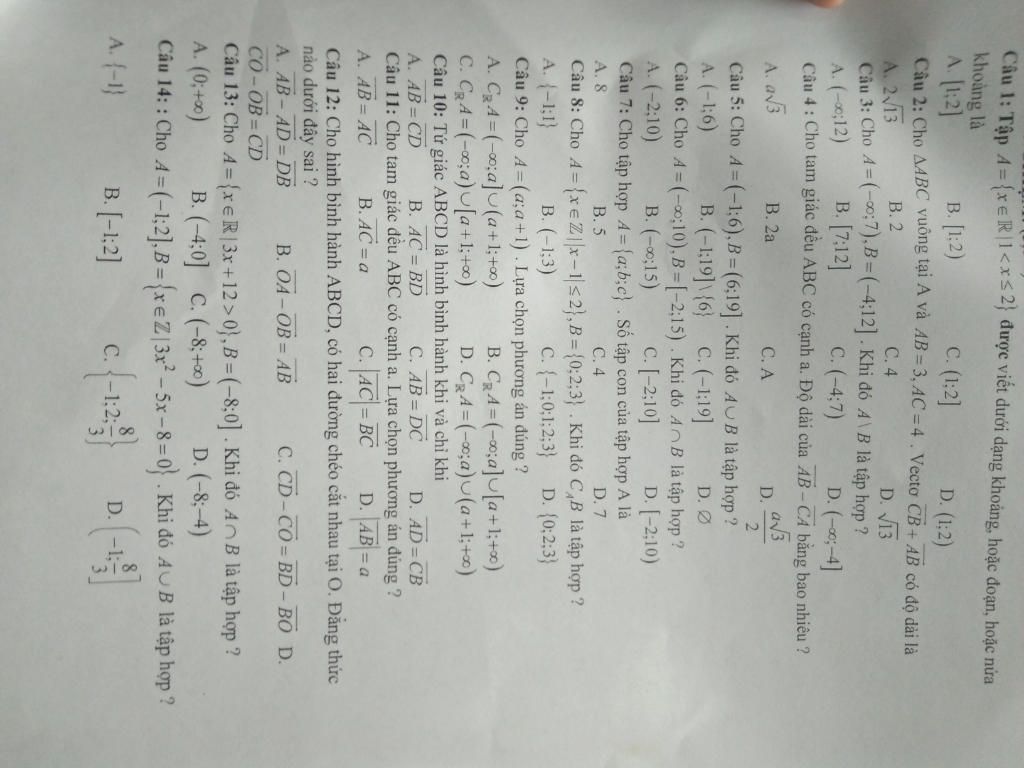 Câu 1: Tập A = {x ∈ ℝ | 1 < x ≤ 2} được viết dưới dạng khoảng, hoặc đoạn, hoặc nửa
khoảng là
A. [1;2] B. [1;2) C. (1;2] D. (1;2)
Câu 2: Cho ΔABC vuông tại A và AB = 3, AC = 4 . Vectơ \overline{CB} + \overline{AB} có độ dài là
A. 2√13 B. 2 C. 4 D. √13
Câu 3: Cho A = (−∞;7), B = (−4;12] . Khi đó A \ B là tập hợp ?
A. (−∞;12) B. [7;12] C. (−4;7) D. (−∞;−4]
Câu 4 : Cho tam giác đều ABC có cạnh a. Độ dài của \overline{AB} − \overline{CA} bằng bao nhiêu ?
A. a√3 B. 2a C. A D. \frac{a√3}{2}
Câu 5: Cho A = (−1;6), B = (6;19] . Khi đó A ∪ B là tập hợp ?
A. (−1;6) B. (−1;19] \ {6} C. (−1;19] D. ∅
Câu 6: Cho A = (−∞;10), B = [−2;15) . Khi đó A ∩ B là tập hợp ?
A. (−2;10) B. (−∞;15) C. [−2;10] D. [−2;10)
Câu 7: Cho tập hợp A = {a;b;c} . Số tập con của tập hợp A là
A. 8 B. 5 C. 4 D. 7
Câu 8: Cho A = {x ∈ ℤ | |x − 1| ≤ 2}, B = {0;2;3} . Khi đó C_A B là tập hợp ?
A. {−1;1} B. (−1;3) C. {−1;0;1;2;3} D. {0;2;3}
Câu 9: Cho A = (a;a+1) . Lựa chọn phương án đúng ?
A. C_ℝ A = (−∞;a] ∪ (a+1;+∞) B. C_ℝ A = (−∞;a] ∪ [a+1;+∞)
C. C_ℝ A = (−∞;a) ∪ [a+1;+∞) D. C_ℝ A = (−∞;a) ∪ (a+1;+∞)
Câu 10: Tứ giác ABCD là hình bình hành khi và chỉ khi
A. \overline{AB} = \overline{CD} B. \overline{AC} = \overline{BD} C. \overline{AB} = \overline{DC} D. \overline{AD} = \overline{CB}
Câu 11: Cho tam giác đều ABC có cạnh a. Lựa chọn phương án đúng ?
A. \overline{AB} = \overline{AC} B. \overline{AC} = a C. |\overline{AC}| = \overline{BC} D. |\overline{AB}| = a
Câu 12: Cho hình bình hành ABCD, có hai đường chéo cắt nhau tại O. Đẳng thức
nào dưới đây sai ?
A. \overline{AB} − \overline{AD} = \overline{DB} B. \overline{OA} − \overline{OB} = \overline{AB} C. \overline{CD} − \overline{CO} = \overline{BD} − \overline{BO} D.
\overline{CO} − \overline{OB} = \overline{CD}
Câu 13: Cho A = {x ∈ ℝ | 3x + 12 > 0}, B = (−8;0] . Khi đó A ∩ B là tập hợp ?
A. (0;+∞) B. (−4;0] C. (−8;+∞) D. (−8;−4)
Câu 14: : Cho A = (−1;2], B = {x ∈ ℤ | 3x² − 5x − 8 = 0} . Khi đó A ∪ B là tập hợp ?
A. {−1} B. [−1;2] C. {−1;2;\frac{8}{3}} D. (−1;\frac{8}{3}]